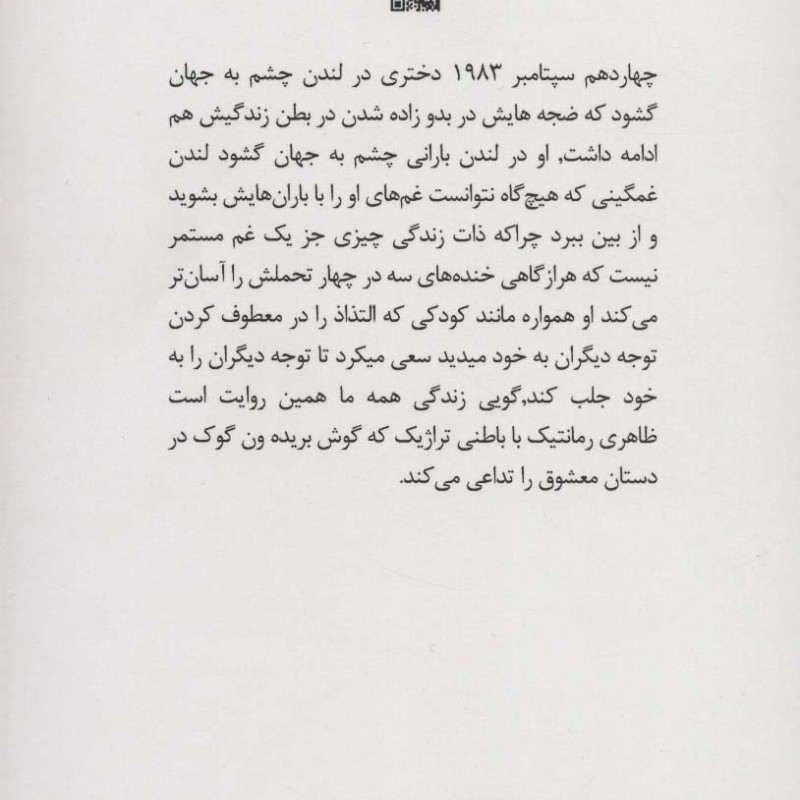 چهاردهم سپتامبر ۱۹۸۳ دختری در لندن چشم به جهان
گشود که ضجه هایش در بدو زاده شدن در بطن زندگیش هم
ادامه داشت, او در لندن بارانی چشم به جهان گشود لندن
غمگینی که هیچ‌گاه نتوانست غم‌های او را با باران‌هایش بشوید
و از بین ببرد چراکه ذات زندگی چیزی جز یک غم مستمر
نیست که هرازگاهی خنده‌های سه در چهار تحملش را آسان‌تر
می‌کند او همواره مانند کودکی که التذاذ را در معطوف کردن
توجه دیگران به خود میدید سعی میکرد تا توجه دیگران را به
خود جلب کند,گویی زندگی همه ما همین روایت است
ظاهری رمانتیک با باطنی تراژیک که گوش بریده ون گوک در
دستان معشوق را تداعی می‌کند.